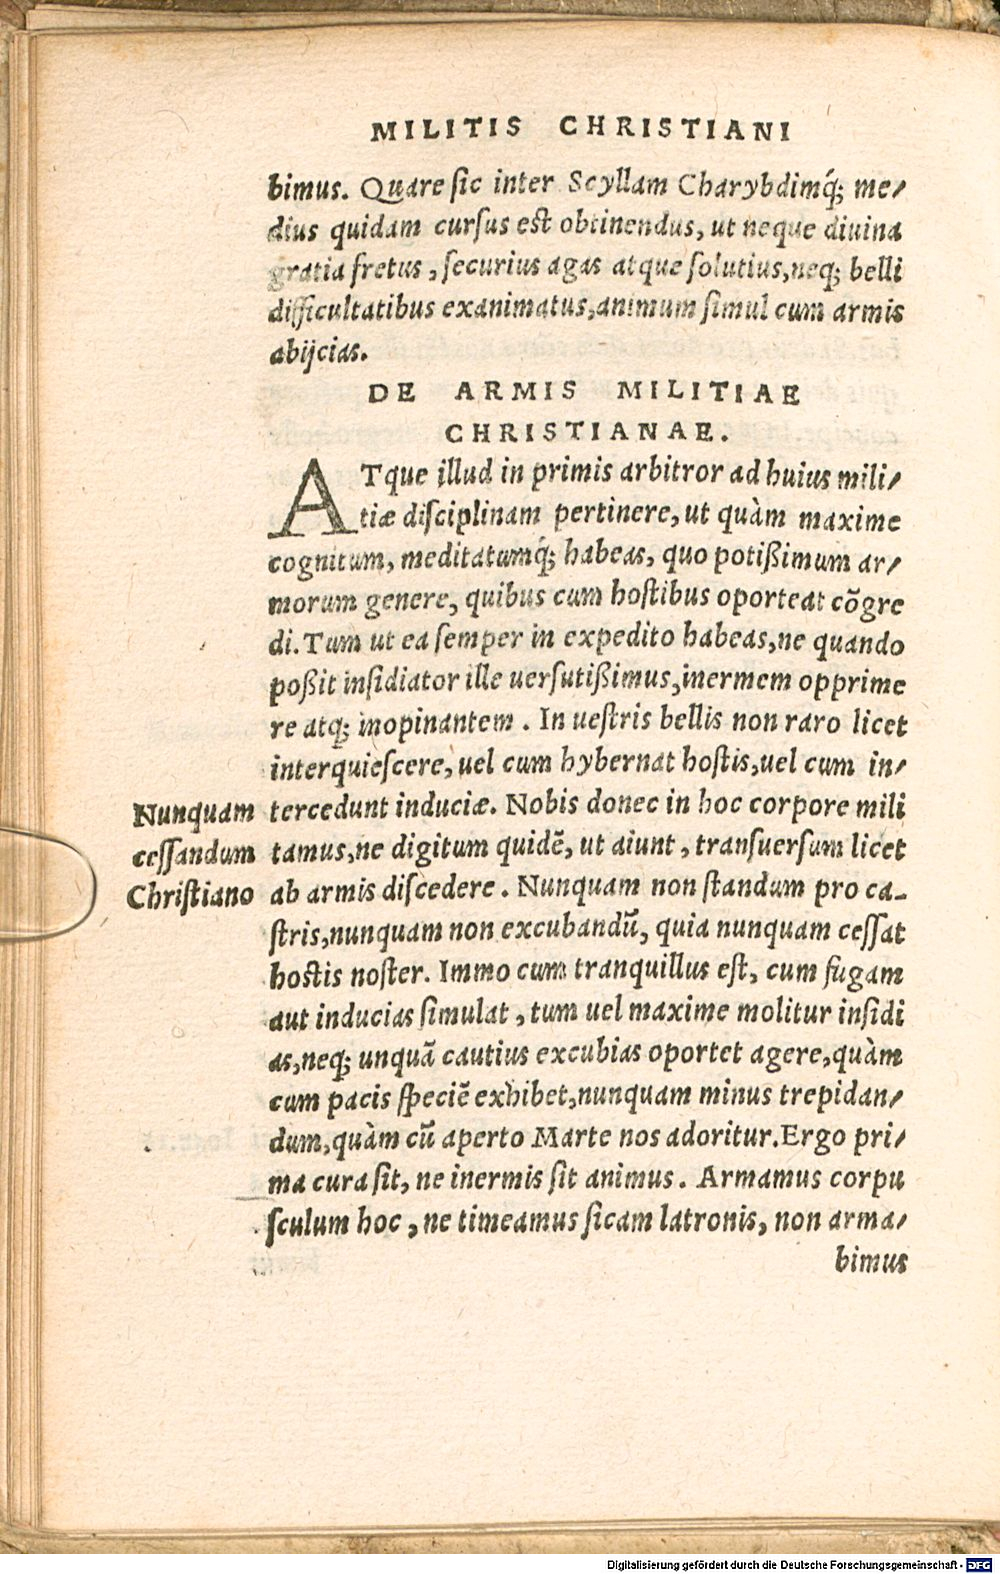 MILITIS CHRISTIANI
bimus. Quare ſic inter Scyllam Charybdimq́; me⸗
dius quidam curſus eſt obtinendus, ut neque diuina
gratia fretus, ſecurius agas atque ſolutius, neq; belli
difficultatibus exanimatus, animum ſimul cum armis
abijcias.
DE ARMIS MILITIAE
CHRISTIANAE.
ATque illud in primis arbitror ad huius mili⸗
tiæ diſciplinam pertinere, ut quàm maxime
cognitum, meditatumq́; habeas, quo potißimum ar⸗
morum genere, quibus cum hoſtibus oporteat cõgre
di. Tum ut ea ſemper in expedito habeas, ne quando
poßit inſidiator ille uerſutißimus, inermem opprime
re atq; inopinantem. In ueſtris bellis non raro licet
interquieſcere, uel cum hybernat hoſtis, uel cum in⸗
Nunquam
ceſſandum
Chriſtiano
tercedunt induciæ. Nobis donec in hoc corpore mili
tamus, ne digitum quidẽ, ut aiunt, tranſuerſum licet
ab armis diſcedere. Nunquam non ſtandum pro ca-
ſtris, nunquam non excubandũ, quia nunquam ceſſat
hoſtis noſter. Immo cum tranquillus eſt, cum fugam
aut inducias ſimulat, tum uel maxime molitur inſidi
as, neq; unquã cautius excubias oportet agere, quàm
cum pacis ſpeciẽ exhibet, nunquam minus trepidan⸗
dum, quàm cũ aperto Marte nos adoritur. Ergo pri⸗
ma cura ſit, ne inermis ſit animus. Armamus corpu
ſculum hoc, ne timeamus ſicam latronis, non arma⸗
bimus
Digitalisierung gefördert durch die Deutsche Forschungsgemeinschaft - DFG